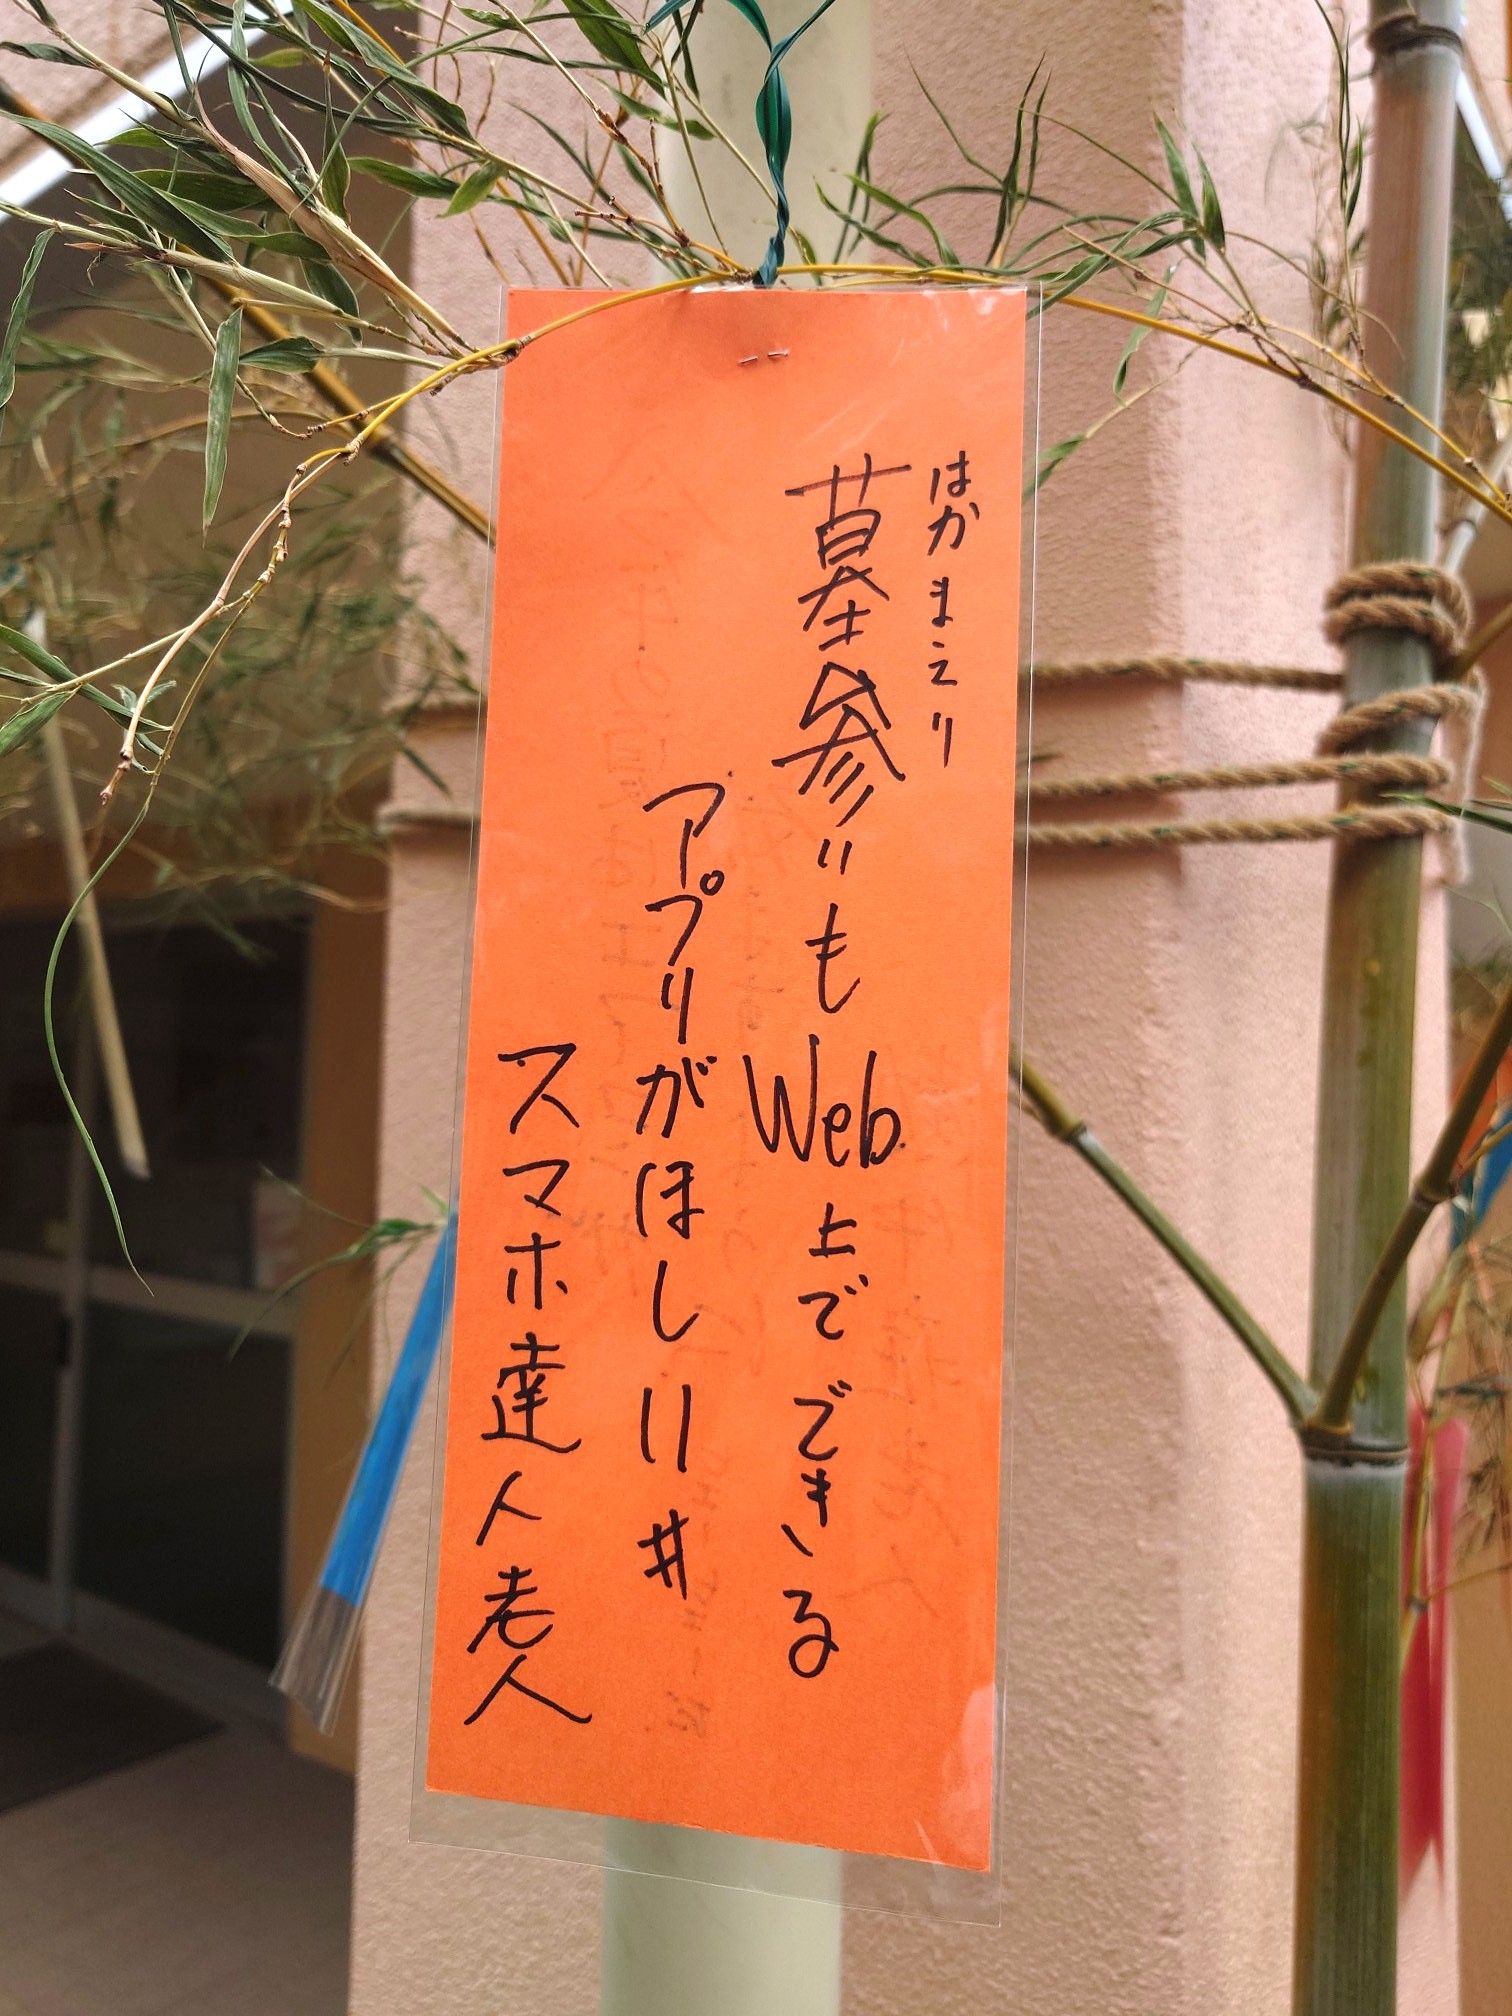 はかまえり
墓参りもWeb上でできる
アプリがほしい!!
スマホ達人老人